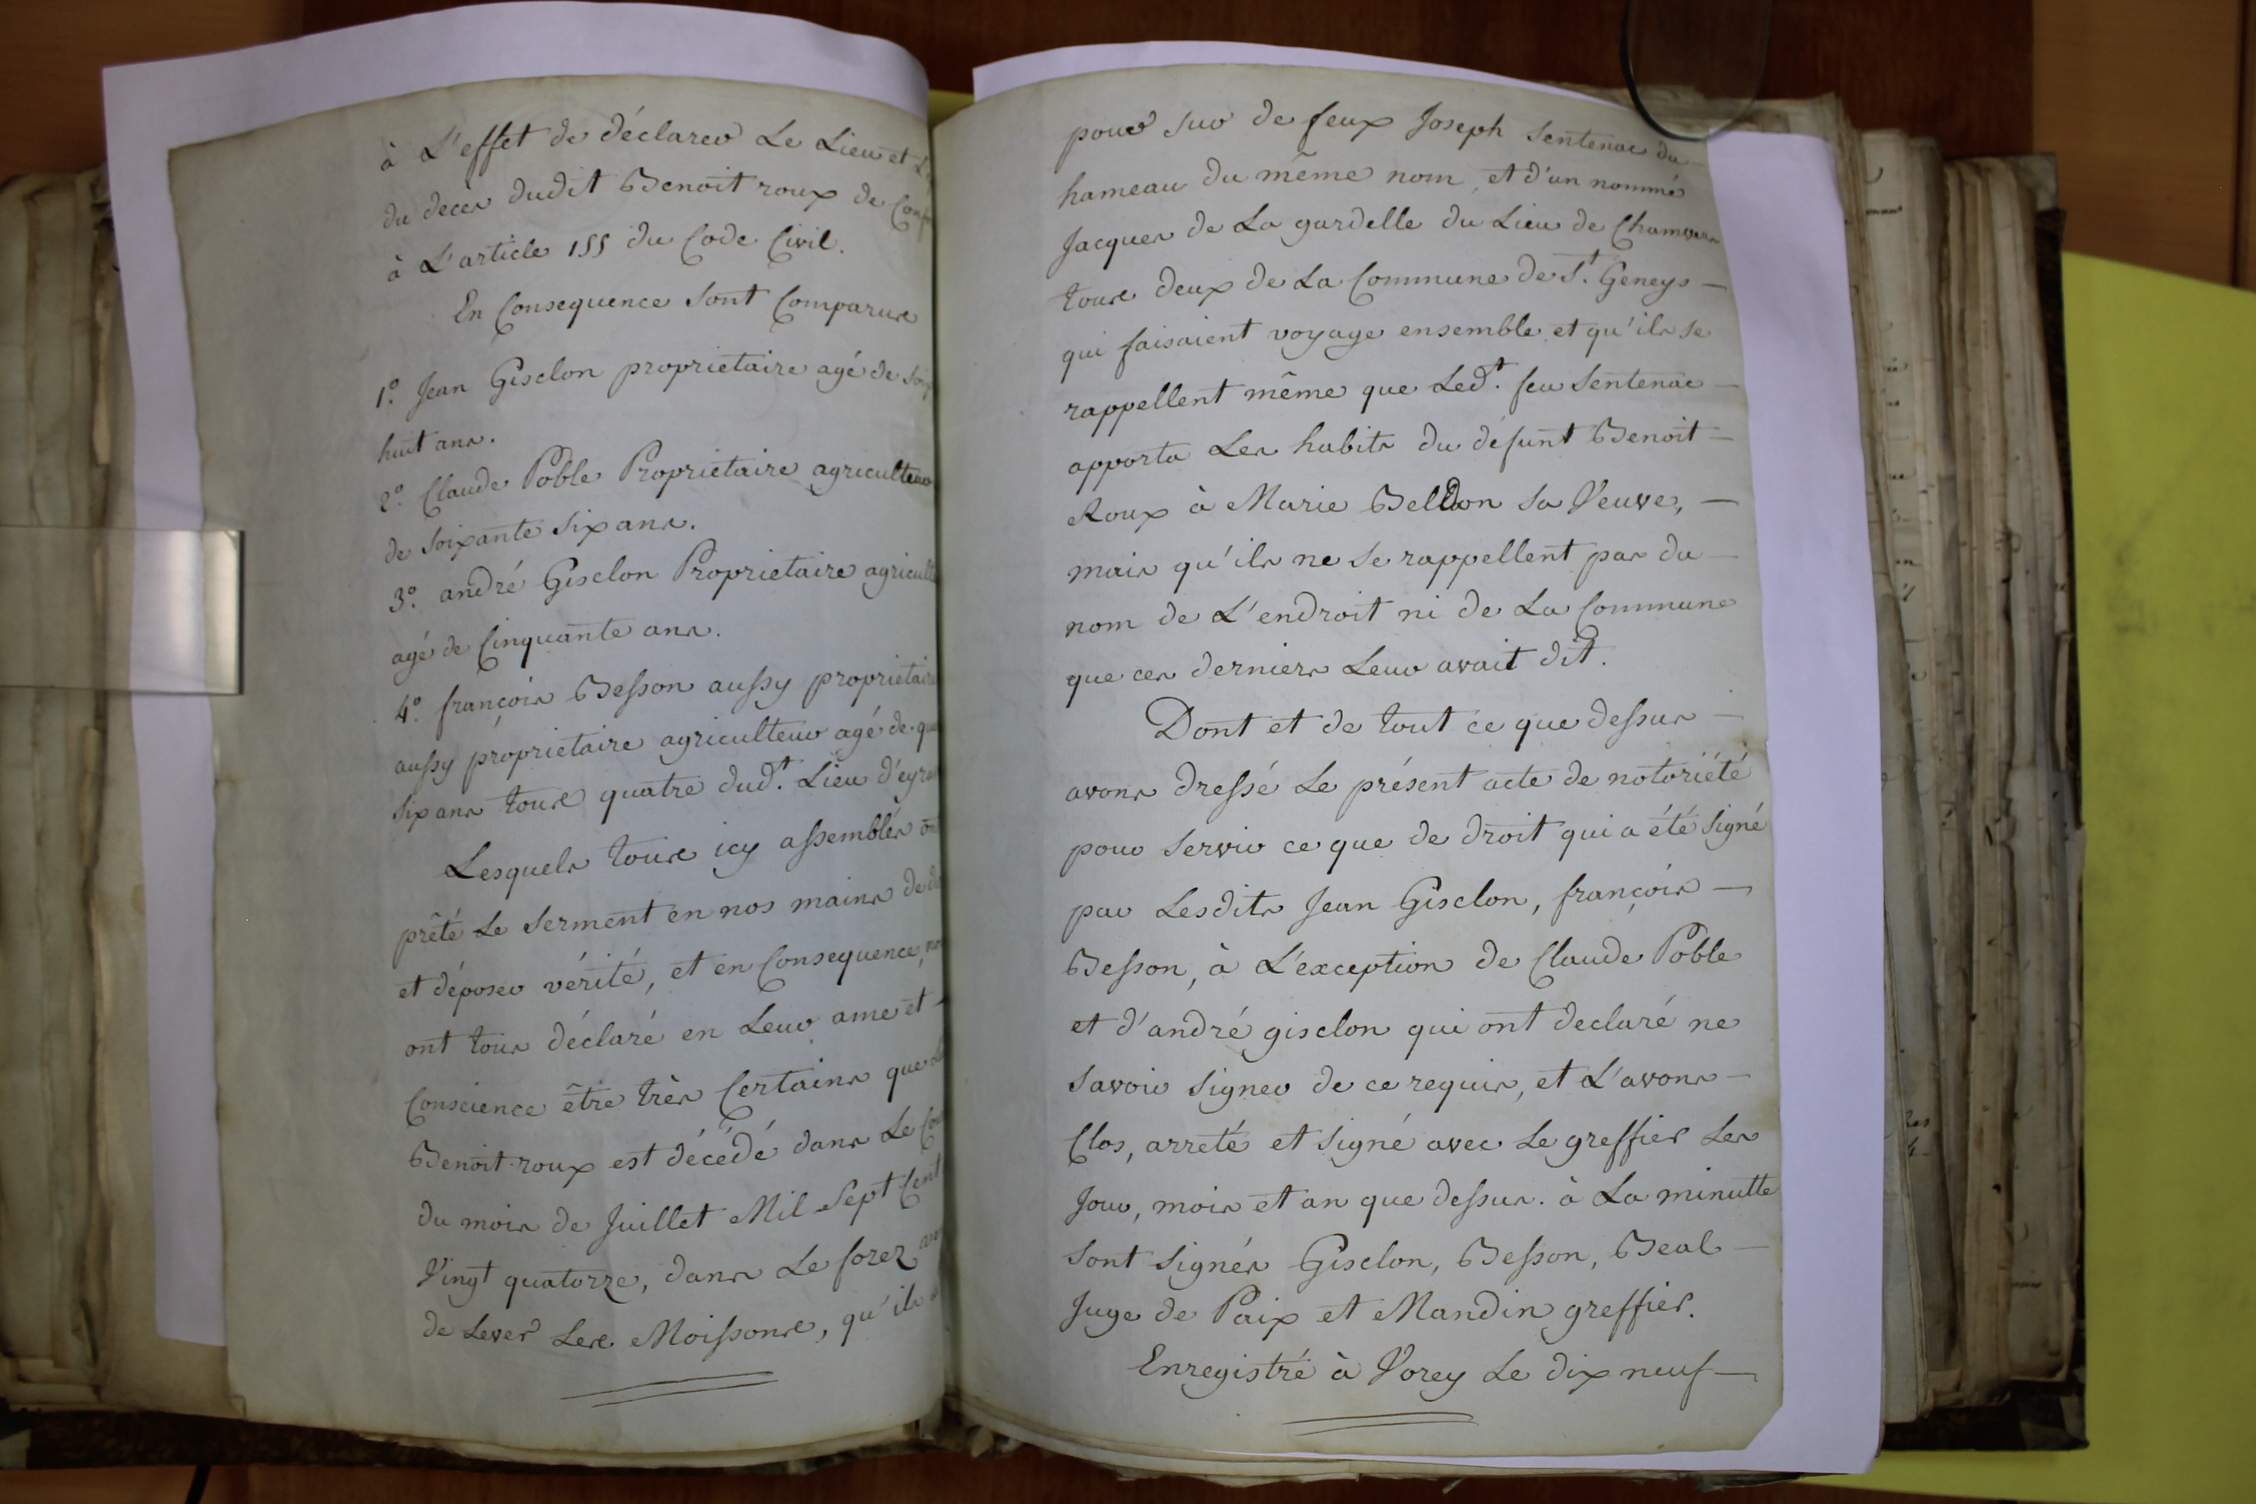 à L'effet de déclarer Le Lieu et
du decès dudit Benoit roux de
à L'article 155 du Code Civil.
En Consequence sont Comparus
1º. Jean Gisclon proprietaire agé de
huit ans.
2º. Claude Poble Proprietaire agriculteur
de soixante six ans.
3º. andré Gisclon Proprietaire
agé de Cinquante ans.
4º. françois Besson aussy proprietaire
aussy proprietaire agriculteur agé de
six ans tous quatre dud.t Lieu
Lesquels tous icy assemblés
prêté Le serment en nos mains de
et déposer vérité, et en Consequence,
ont tous déclaré en Leur ame et
Conscience être très Certains que
Benoit roux est décédé dans Le
du mois de Juillet Mil Sept Cent
Vingt quatorze, dans Le forez
de Lever Les Moissons, qu'ils
pour sur de feux Joseph Sentenac du
hameau du même nom, et d'un nommé
Jacques de La gardelle du Lieu de
tous deux de La Commune de S.t Geneys —
qui faisaient voyage ensemble et qu'ils se
rappellent même que Led.t feu Sentenac —
apporta Les habits du défunt Benoit —
Roux à Marie Belldon sa Veuve, —
mais qu'ils ne se rappellent pas du —
nom de L'endroit ni de La Commune
que ces derniers Leur avait dit.
Dont et de tout ce que dessus —
avons dressé Le présent acte de notoriété
pour servir ce que de droit qui a été signé
par Lesdits Jean Gisclon, françois —
Besson, à L'exception de Claude Poble
et d'andré gisclon qui ont declaré ne
savoir signer de ce requis, et L'avons —
Clos, arreté et signé avec Le greffier Les
Jour, mois et an que dessus. à La minutte
sont signés Gisclon, Besson, Beal —
Juge de Paix et Mandin greffier.
Enregistré à Vorey Le dix neuf —